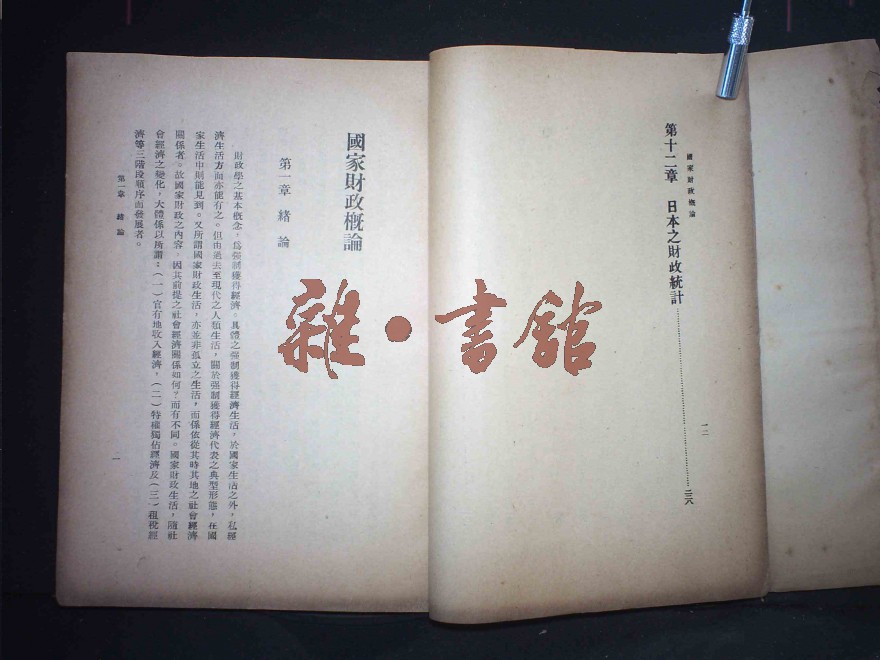 國家財政概論
第十二章 日本之財政統計
二
國家財政概論
第一章 緒論
財政學之基本概念，爲強制獲得經濟。具體之強制獲得經濟生活，於國家生活之外，私經
濟生活方面亦能有之。但由過去至現代之人類生活，關於強制獲得經濟代表之典型形態，在國
家生活中則能見到。又所謂國家財政生活，亦並非孤立之生活，而係依從其時其地之社會經濟
關係者。故國家財政之內容，因其前提之社會經濟關係如何？而有不同。國家財政生活，隨社
會經濟之變化，大體係以所謂：（一）官有地收入經濟，（二）特權獨佔經濟及（三）租稅經
濟等三階段順序而發展者。
第一章 緒論
一
雜·書館